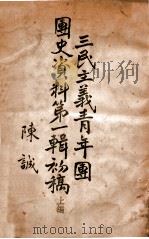 三民主義青年團
團史資料第一輯初稿 上編
陳誠
mtoou.info dtkutoo.com